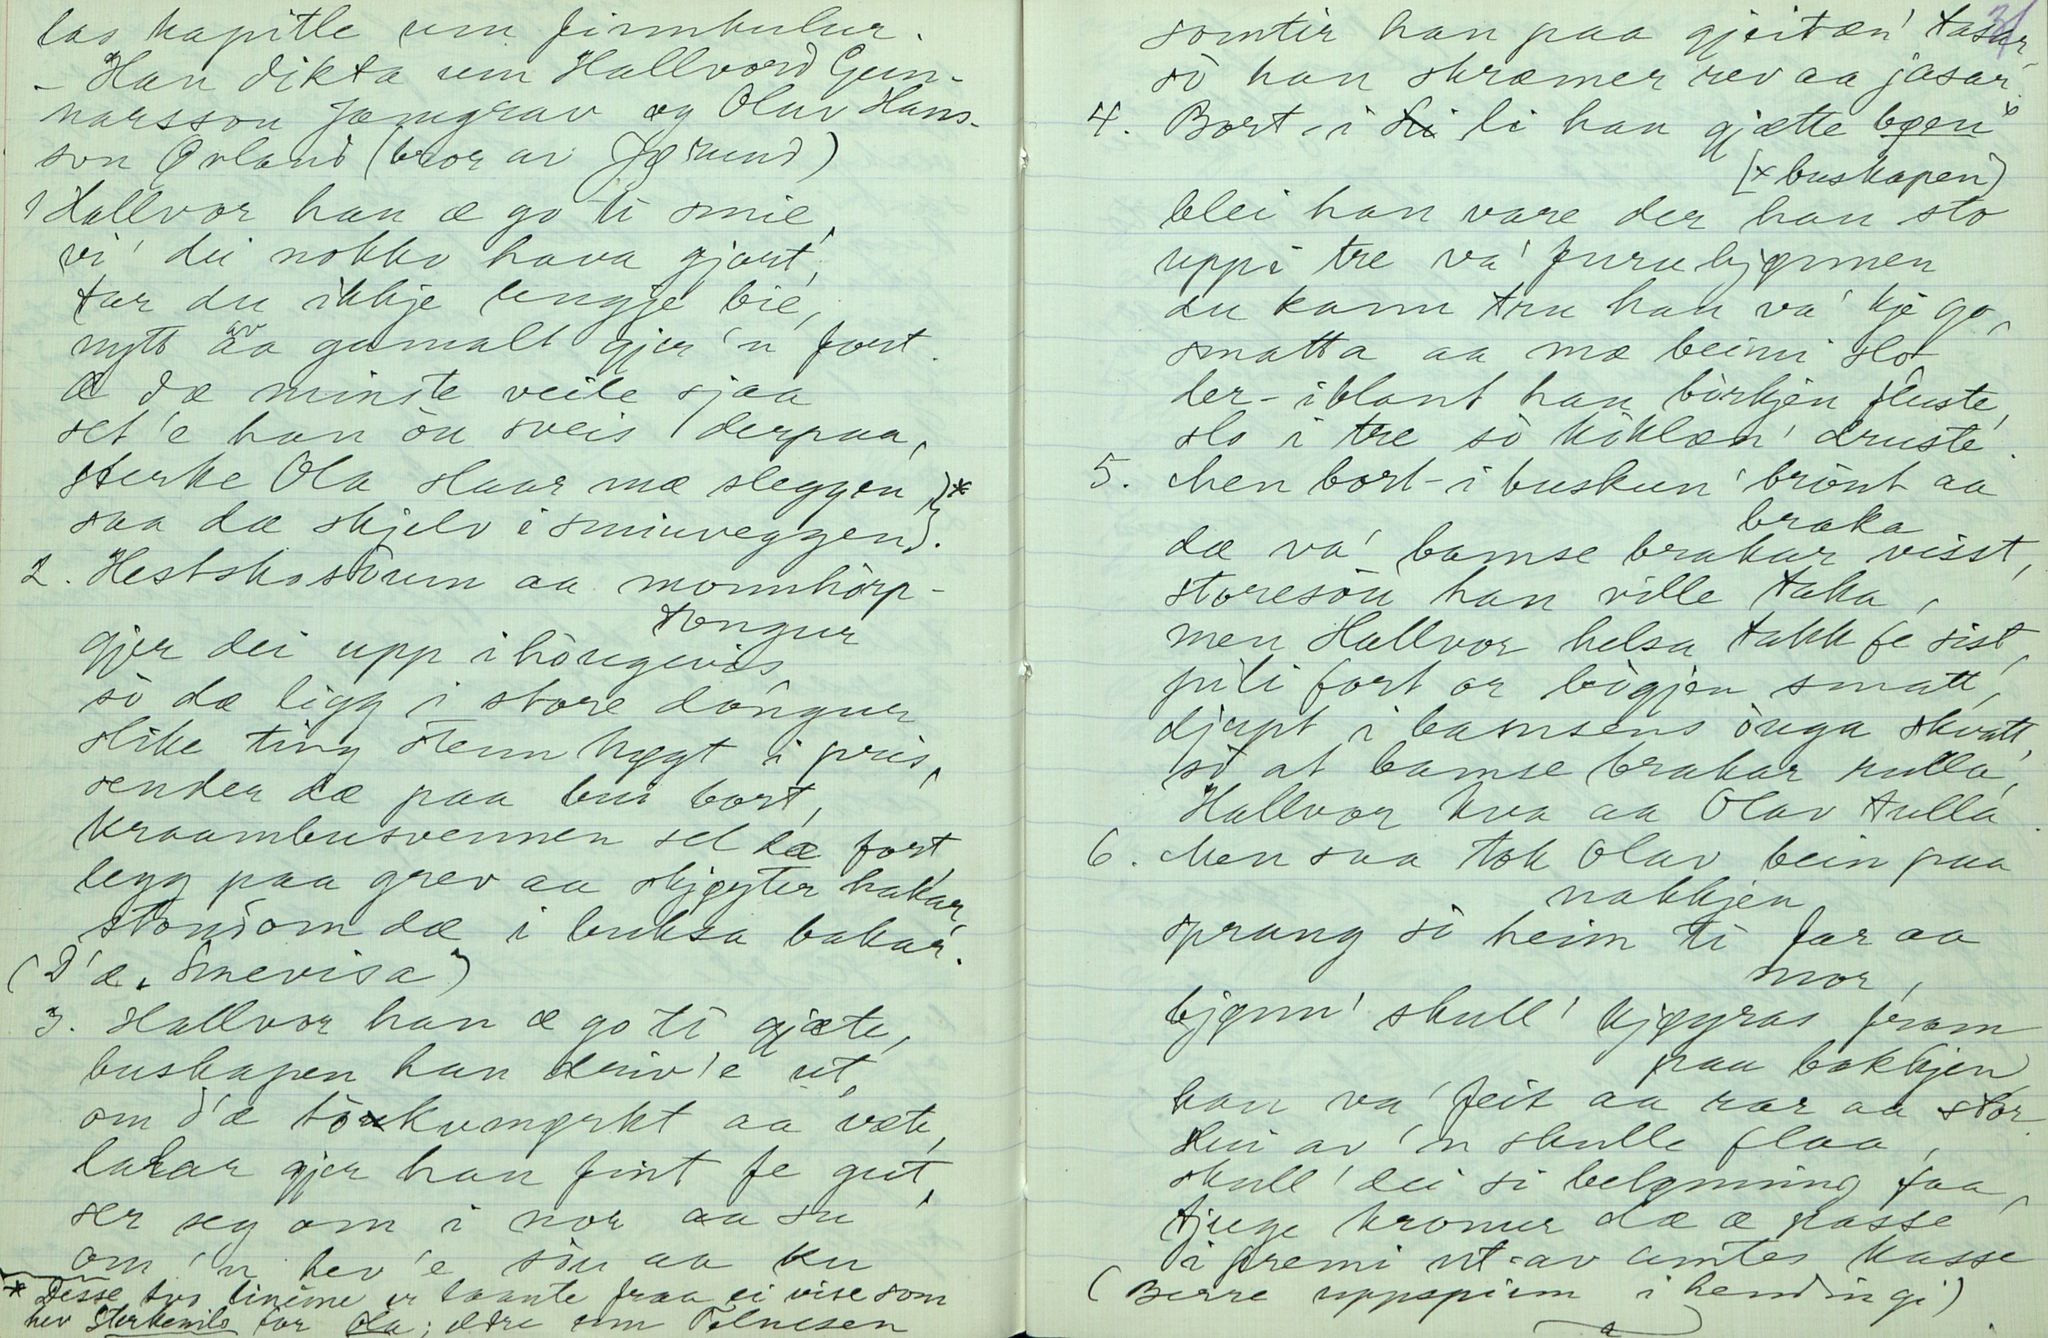 las kapitle um fimbulur.
- Han dikta um Hallvord Gun-
narsson Jamgrav og Olav Hans-
son Øvland (bror av Jørund)
1 Hallvor han æ go ti smie,
vi' dei nokko hava gjort,
tar du ikkje lengje bie,
nytt av gamalt gjer 'n fort.
Æ dæ minste veile sjaa
set 'e han òu sveis derpaa,
sterke Ola slaar mæ sleggen }*
saa dæ skjelv i smiuveggen }.
2. Hestskosaum aa monnhòrp-
tongur
gjer dei upp i hòugevis
sò dæ ligg i store dòngur
slike ting stenn høgt i pris,
sender dæ paa bui bort,
kraambusvennen sel dæ fort,
legg paa grev aa skjøyter hakar,
stondom dæ i buksa bakar.
(D'æ "Smevisa")
3. Hallvor han æ go ti gjæte,
buskapen han driv 'e út,
om d'æ tòukvmørkt aa væte,
lakar gjer han fint fe gut,
ser seg om i nor aa su
om 'n hev 'e sòu aa ku
* Desse two linune er laante fraa ei vise som
hev Sterkenils for Ola; ældre um Tolnesen
31
somtir han paa gjeitæn' tasar
sò han skræmer rev aa jasar.
4. Bort-i li han gjætte bøen x
[x buskapen)
blei han vare der han sto
uppi tre va' furubjønnen
du kann tru han va' kje go,
smatta aa mæ beini slo
der-iblant han bòrkjen fluste,
slo i tre sò kòklæn' druste.
5. Men bort-i buskun' brònt aa
braka
dæ va' bamse brakar visst,
storesòu han ville taka,
men Hallvor helsa takk fe sist,
pili fort or bògjen smatt,
djupt i bamsens òuga skvatt,
sò at bamse brakar rulla,
Hallvor kva aa Olav tulla.
6. Men saa tok Olav bein paa
nakkjen
sprang sò heim ti far aa
mor,
bjønn' skull' kjøyras fram
paa bakkjen
han va' feit aa rar aa stor.
Hui av 'n skulle flaa,
skull' dei si beløning faa,
tjuge kronur dæ æ passe
i premi ut-av amtes kasse
(Berre uppspinn i hendingi)